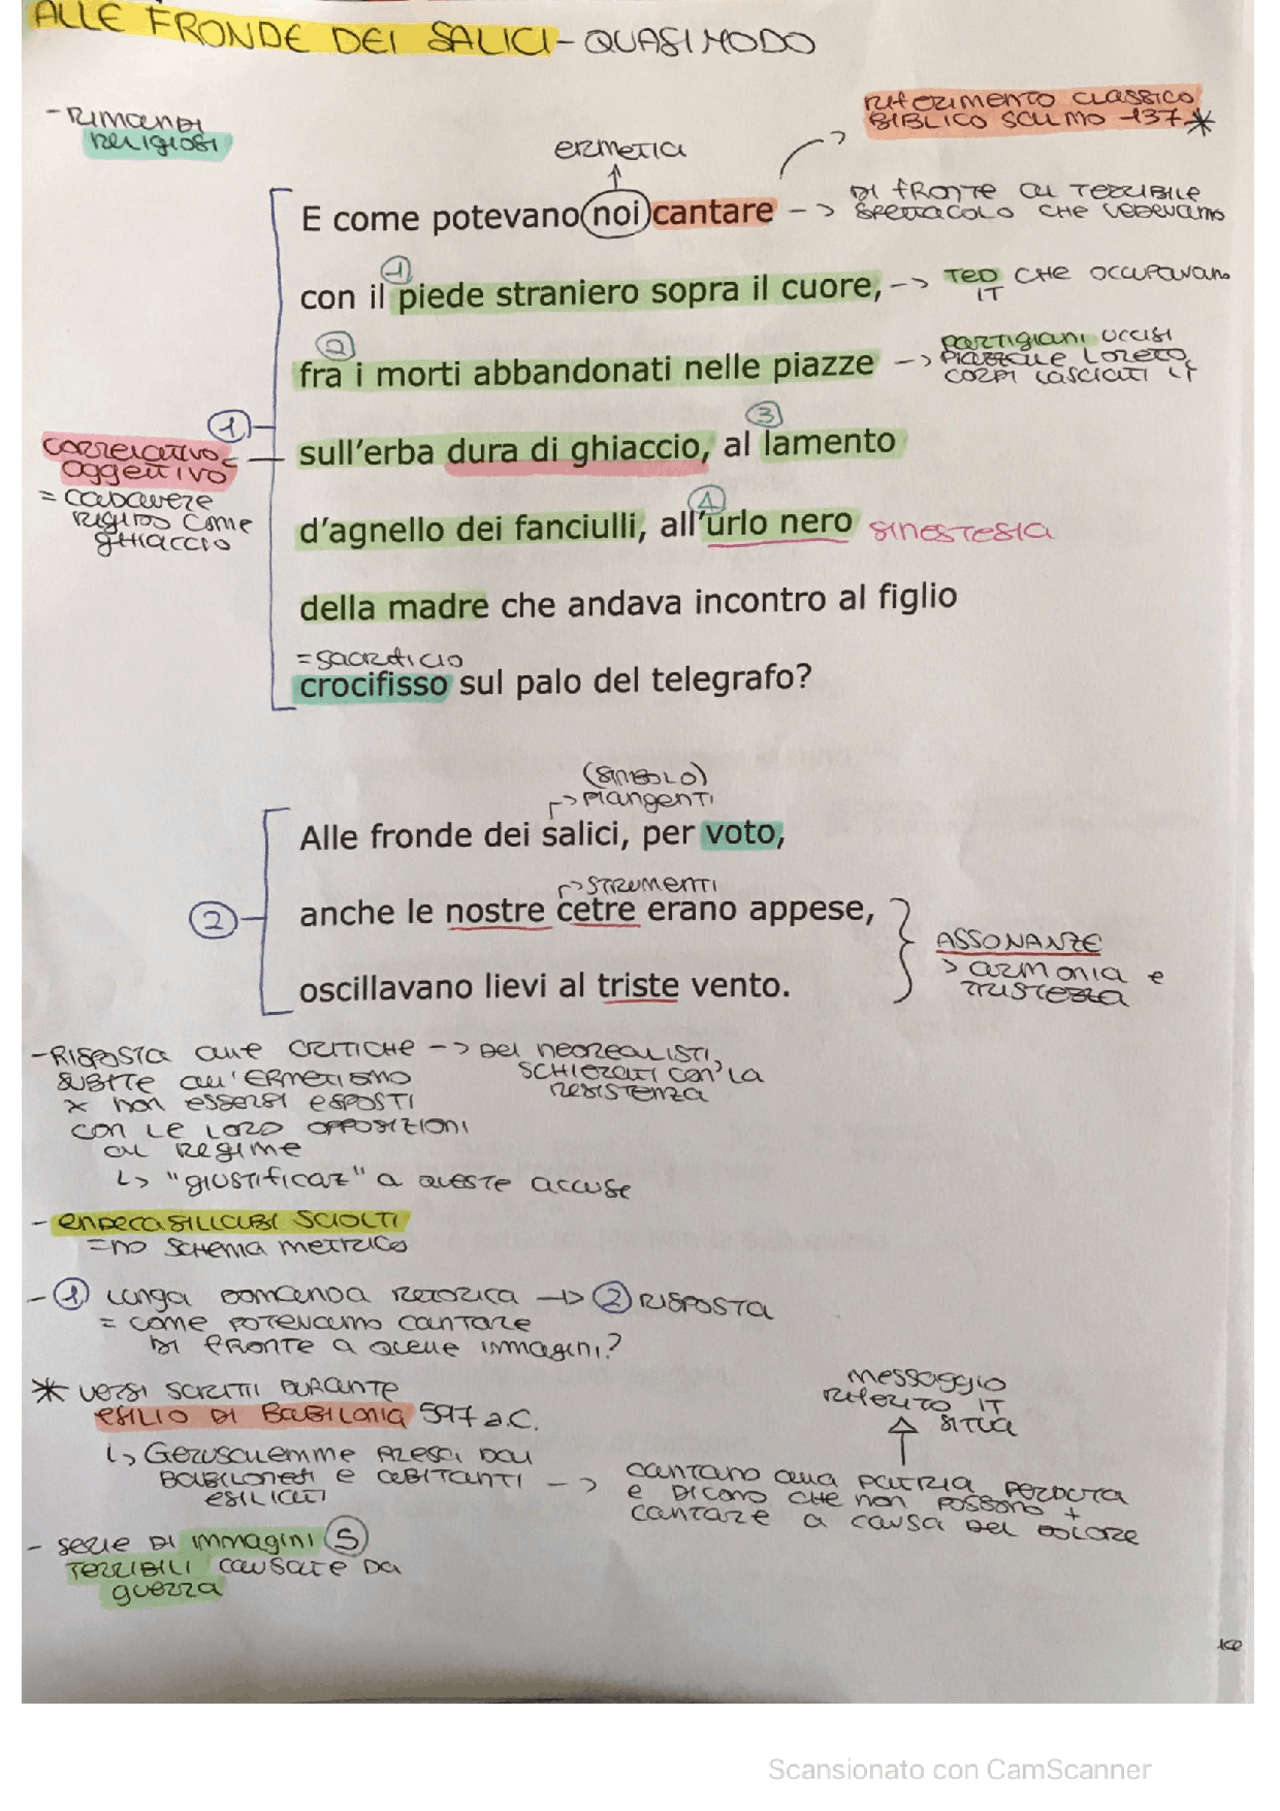 ALLE FRONDE DEI SALICI - QUASIMODO
- RIMANDI
RELIGIOSI
RIFERIMENTO CLASSICO
BIBLICO SALMO 137 *
ERMETICI
DI FRONTE AL TERRIBILE
SPETTACOLO CHE VEDEVAMO
E come potevano noi cantare -->
1
con il piede straniero sopra il cuore, --> TED CHE OCCUPAVANO
IT
2
PARTIGIANI UCCISI
fra i morti abbandonati nelle piazze --> PIAZZALE LORETO,
CORPI LASCIATI LÌ
1
3
CORRELATIVO
OGGETTIVO
= CADAVERE
RIGIDO COME
GHIACCIO
sull'erba dura di ghiaccio, al lamento
4
d'agnello dei fanciulli, all'urlo nero SINESTESIA
della madre che andava incontro al figlio
= SACRIFICIO
crocifisso sul palo del telegrafo?
(SIMBOLO)
PIANGENTI
Alle fronde dei salici, per voto,
STRUMENTI
2
anche le nostre cetre erano appese,
ASSONANZE
> ARMONIA E
TRISTEZZA
oscillavano lievi al triste vento.
- RISPOSTA ALLE CRITICHE --> DEI NEOREALISTI,
SCHIERATI CON LA
RESISTENZA
SUBITE ALL'ERMETISMO
x NON ESSERSI ESPOSTI
CON LE LORO OPPOSIZIONI
AL REGIME
↳ "GIUSTIFICAZ" A QUESTE ACCUSE
- ENDECASILLABI SCIOLTI
= NO SCHEMA METRICO
- 1 LUNGA DOMANDA RETORICA --> 2 RISPOSTA
= COME POTEVAMO CANTARE
DI FRONTE A QUELLE IMMAGINI?
* VERSI SCRITTI DURANTE
ESILIO DI BABILONIA 597 a.C.
↳ GERUSALEMME PRESA DAI
BABILONESI E ABITANTI -->
ESILIATI
MESSAGGIO
RIFERITO IT
SITUA
CANTANO ALLA PATRIA PERDUTA
E DICONO CHE NON POSSONO +
CANTARE A CAUSA DEL DOLORE
- SERIE DI IMMAGINI 5
TERRIBILI CAUSATE DA
GUERRA
Scansionato con CamScanner